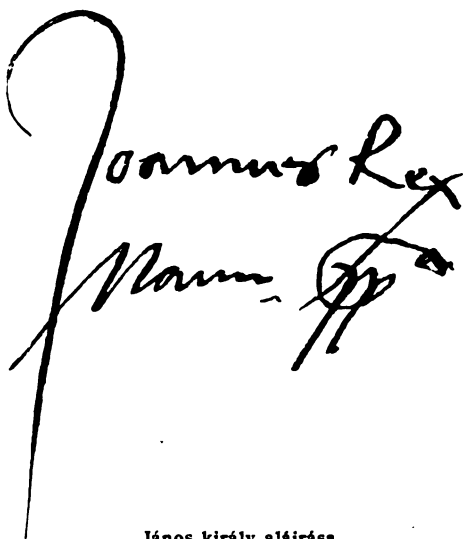 Joannes Rex
Manu ppa
János király aláirása